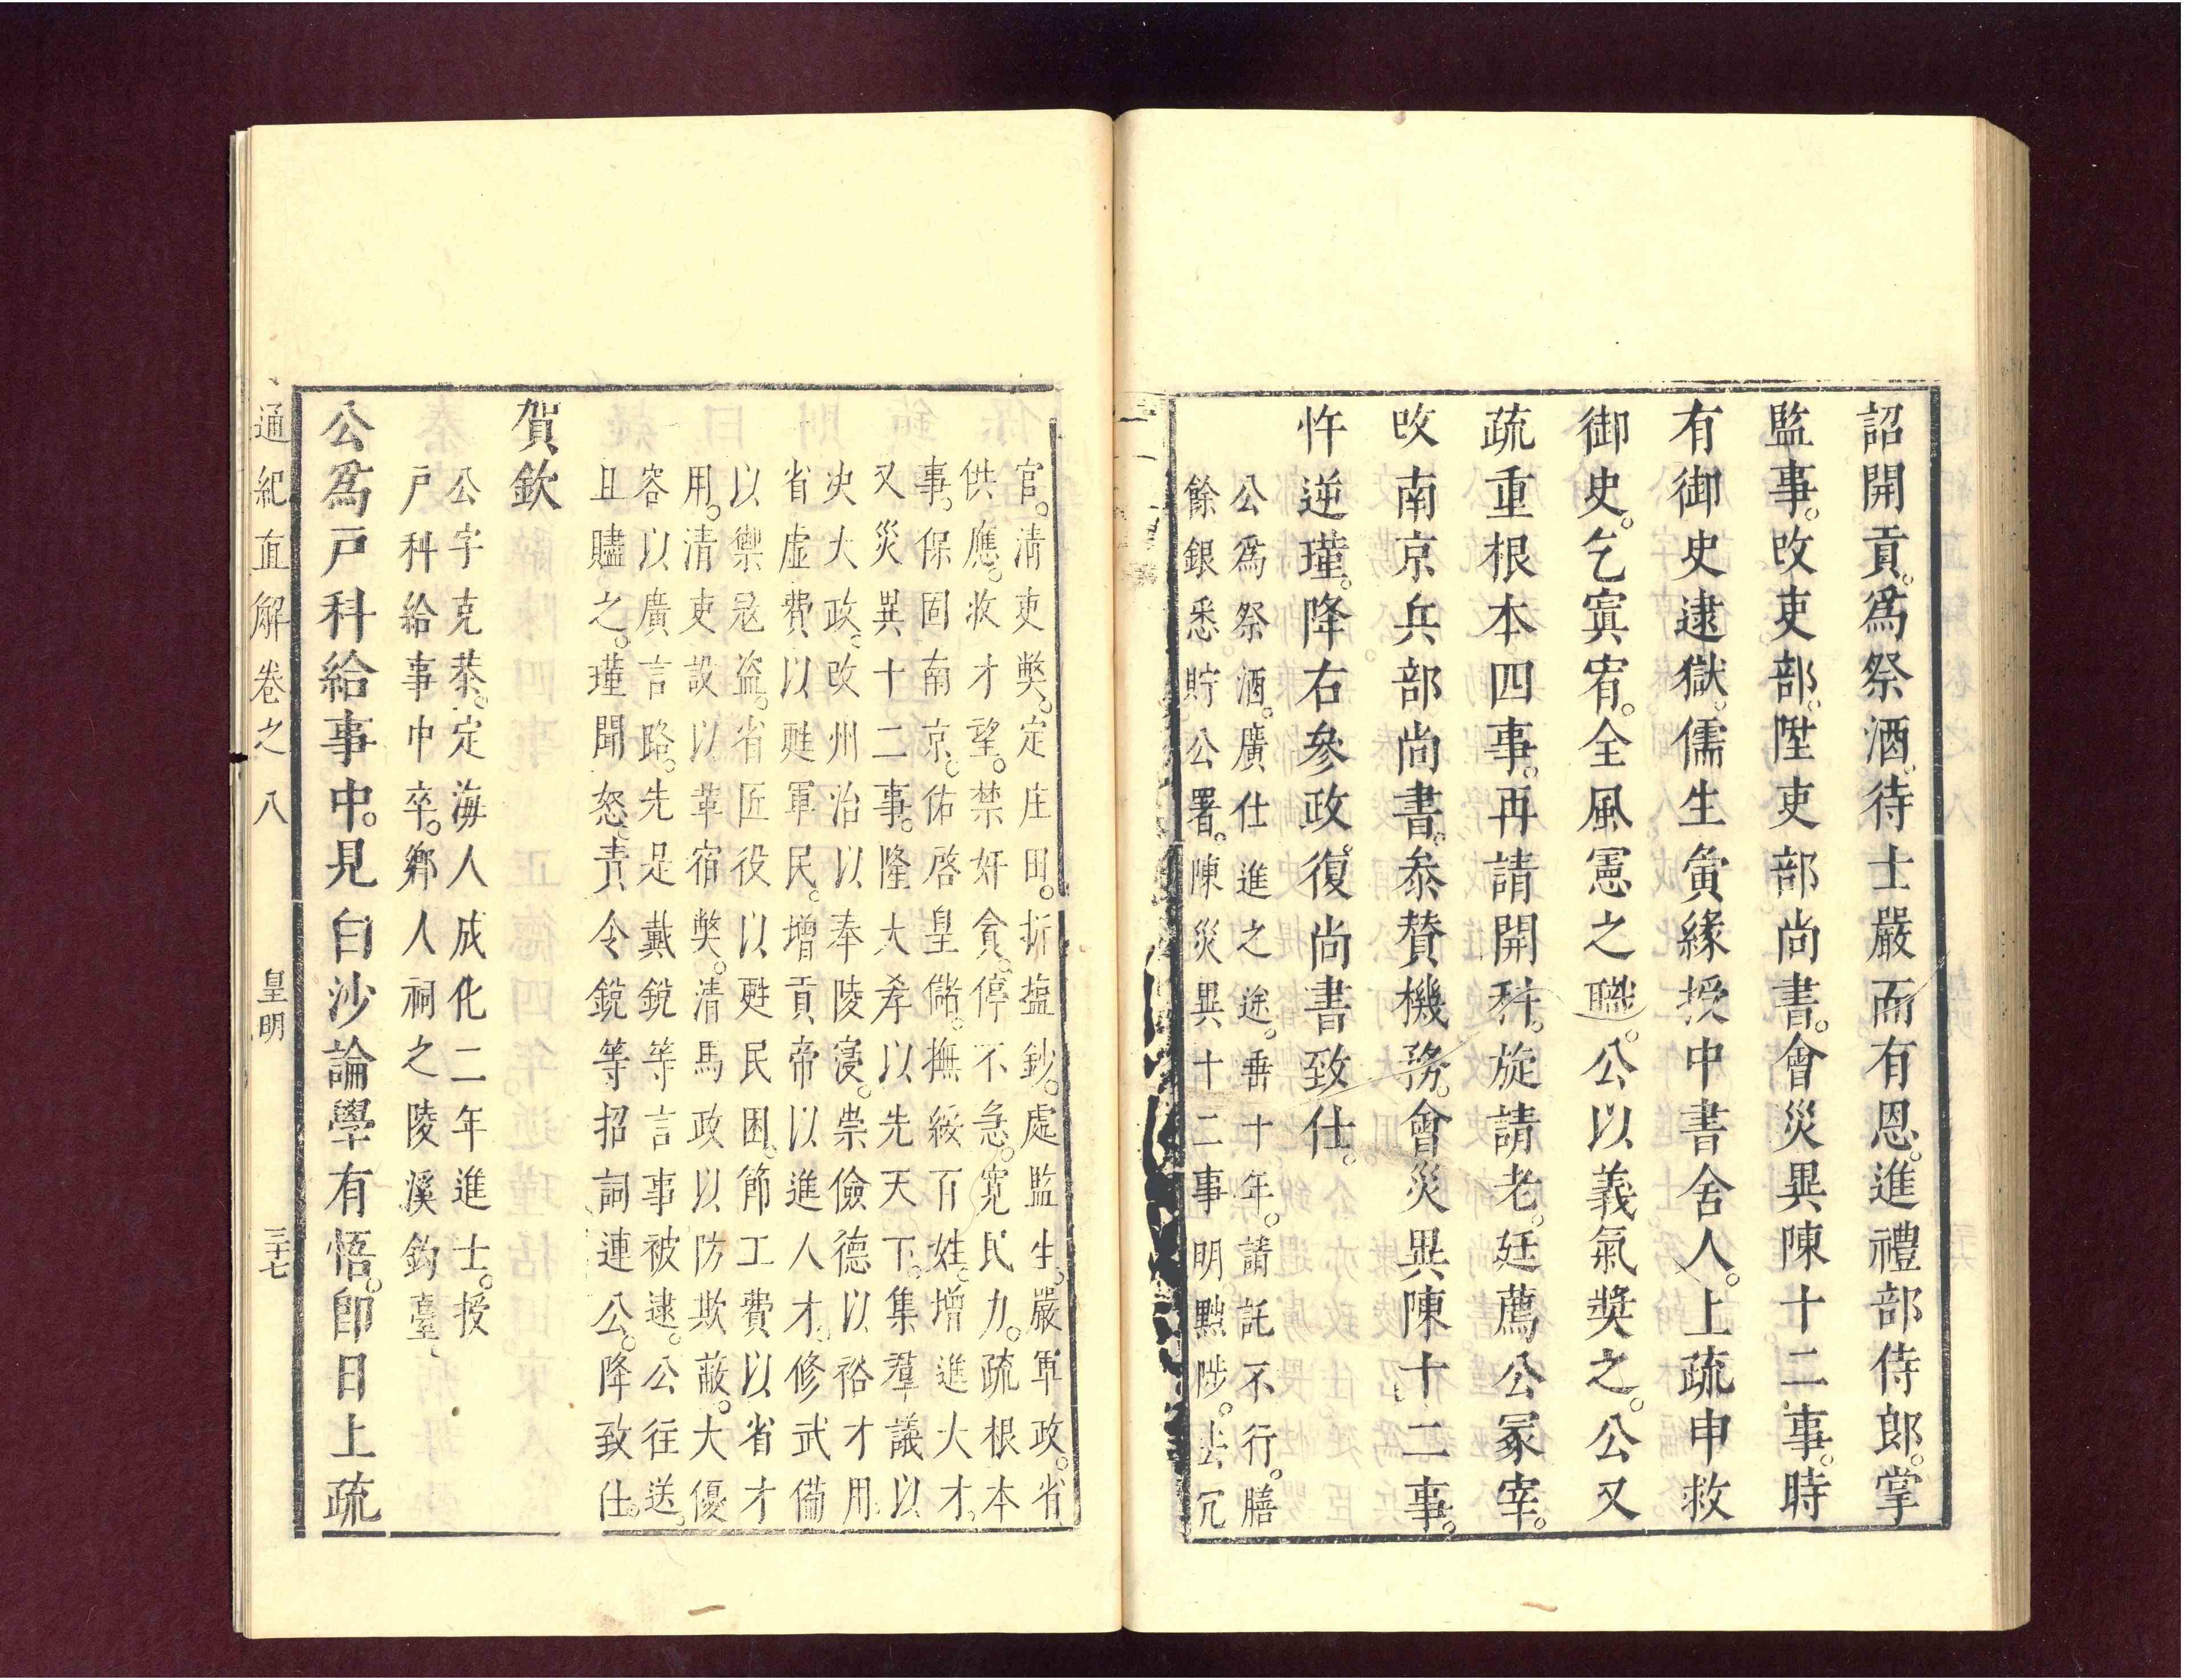 詔開貢。爲祭酒。待士嚴而有恩。進禮部侍郎。掌
監事。改吏部。陞吏部尚書。會災異陳十二事。時
有御史逮獄。儒生夤緣授中書舍人。上疏申救
御史。乞寘宥。全風憲之職。公以義氣奬之。公又
疏重根本四事。再請開科。旋請老。廷薦公冢宰。
改南京兵部尚書。叅賛機務。會災異陳十二事。
忤逆瑾。降右參政。復尚書致仕。
公爲祭酒。廣仕進之途。垂十年。請託不行。膳
餘銀悉貯公署。陳災異十二事明黜陟。去冗
官。清吏弊。定庄田。折塩鈔。處監生。嚴軍政。省
供應。收才望。禁奸貪。停不急。寛民力。疏根本
事。保固南京。佑啓皇儲。撫綏百姓。增進大才。
又災異十二事。隆大孝以先天下。集羣議以
决大政。改州治以奉陵寑。崇儉德以裕才用。
省虚費以甦軍民。增貢帝以進人才。修武備
以禦寇盗。省匠役以甦民困。節工費以省才
用。清吏設以革宿弊。清馬政以防欺蔽。大優
容以廣言路。先是戴銑等言事被逮。公往送。
且贐之。瑾聞怒。責令銳等招詞連公。降致仕。
賀欽
公字克恭。定海人成化二年進士。授
戸科給事中卒。鄉人祠之陵溪釣臺
公爲戸科給事中。見白沙論學有悟。卽日上疏
通紀直解卷之八
皇明
三十七